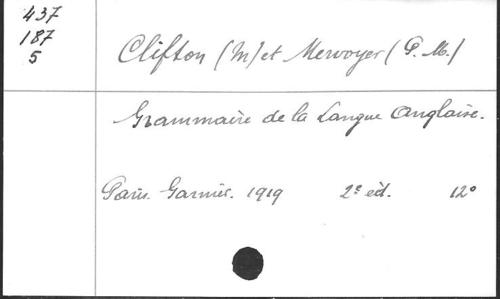 437
187
5
Clifton (M) et Mervoyer (P. M.)
Grammaire de la Langue Anglaise.
Paris. Garnier. 1919 2e éd. 12°